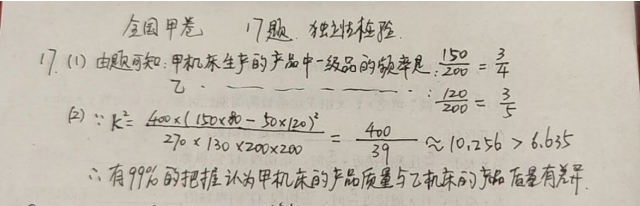 全国甲卷 17题 独立性检验
17.(1) 由题可知:甲机床生产的产品中一级品的频率是:150/200 = 3/4
乙 - - - - - - - - - - : 120/200 = 3/5
(2) ∵ K² = 400×(150×80-50×120)² / 270×130×200×200 = 400/39 ≈ 10.256 > 6.635
∴ 有99%的把握认为甲机床的产品质量与乙机床的产品质量有差异.